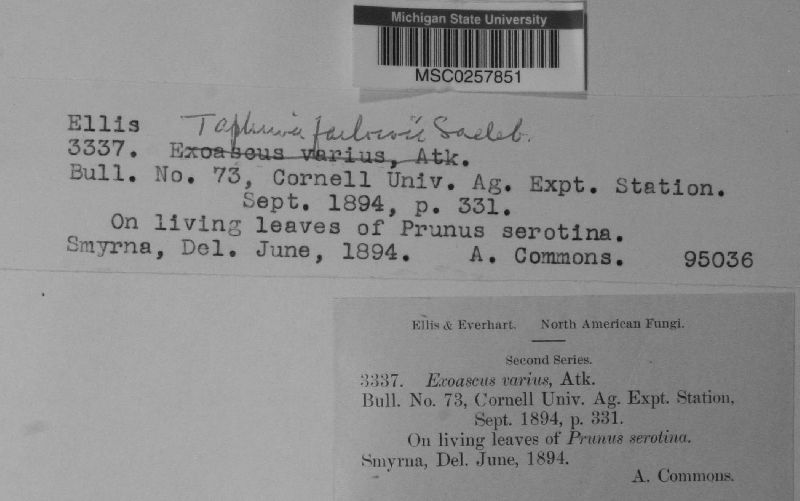 Michigan State University
MSC0257851
Ellis Taphrina farlowii Sadeb.
3337. Exoascus varius, Atk.
Bull. No. 73, Cornell Univ. Ag. Expt. Station.
Sept. 1894, p. 331.
On living leaves of Prunus serotina.
Smyrna, Del. June, 1894. A. Commons. 95036
Ellis & Everhart. North American Fungi.
Second Series.
3337. Exoascus varius, Atk.
Bull. No. 73, Cornell Univ. Ag. Expt. Station,
Sept. 1894, p. 331.
On living leaves of Prunus serotina.
Smyrna, Del. June, 1894.
A. Commons.